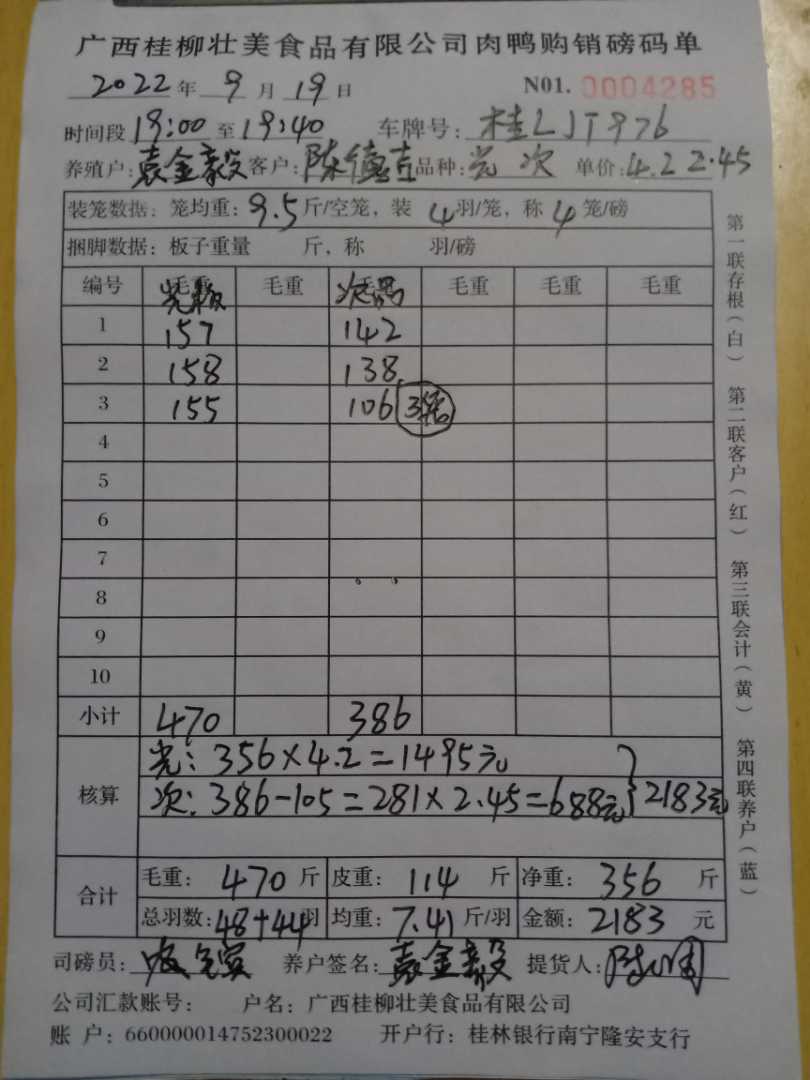 广西桂柳壮美食品有限公司肉鸭购销磅码单
2022年9月19日 N01. 0004285
时间段19:00至19:40 车牌号:桂LJT976
养殖户:袁金毅 客户:陈德 品种:光 次 单价:4.2 2.45
装笼数据:笼均重:9.5斤/空笼,装4羽/笼,称4笼/磅
捆脚数据:板子重量 斤,称 羽/磅
编号 毛重 毛重 毛重 毛重 毛重 毛重
光板 次品
1 157 142
2 158 138
3 155 106 3笼
4
5
6
7
8
9
10
小计 470 386
核算
光:356×4.2=1495元
次:386-105=281×2.45=688元 } 2183元
合计
毛重:470斤 皮重:114斤 净重:356斤
总羽数:48+44羽 均重:7.41斤/羽 金额:2183元
司磅员: 养户签名:袁金毅 提货人:
公司汇款账号: 户名:广西桂柳壮美食品有限公司
账 户:660000014752300022 开户行:桂林银行南宁隆安支行
第一联存根(白) 第二联客户(红) 第三联会计(黄) 第四联养户(蓝)